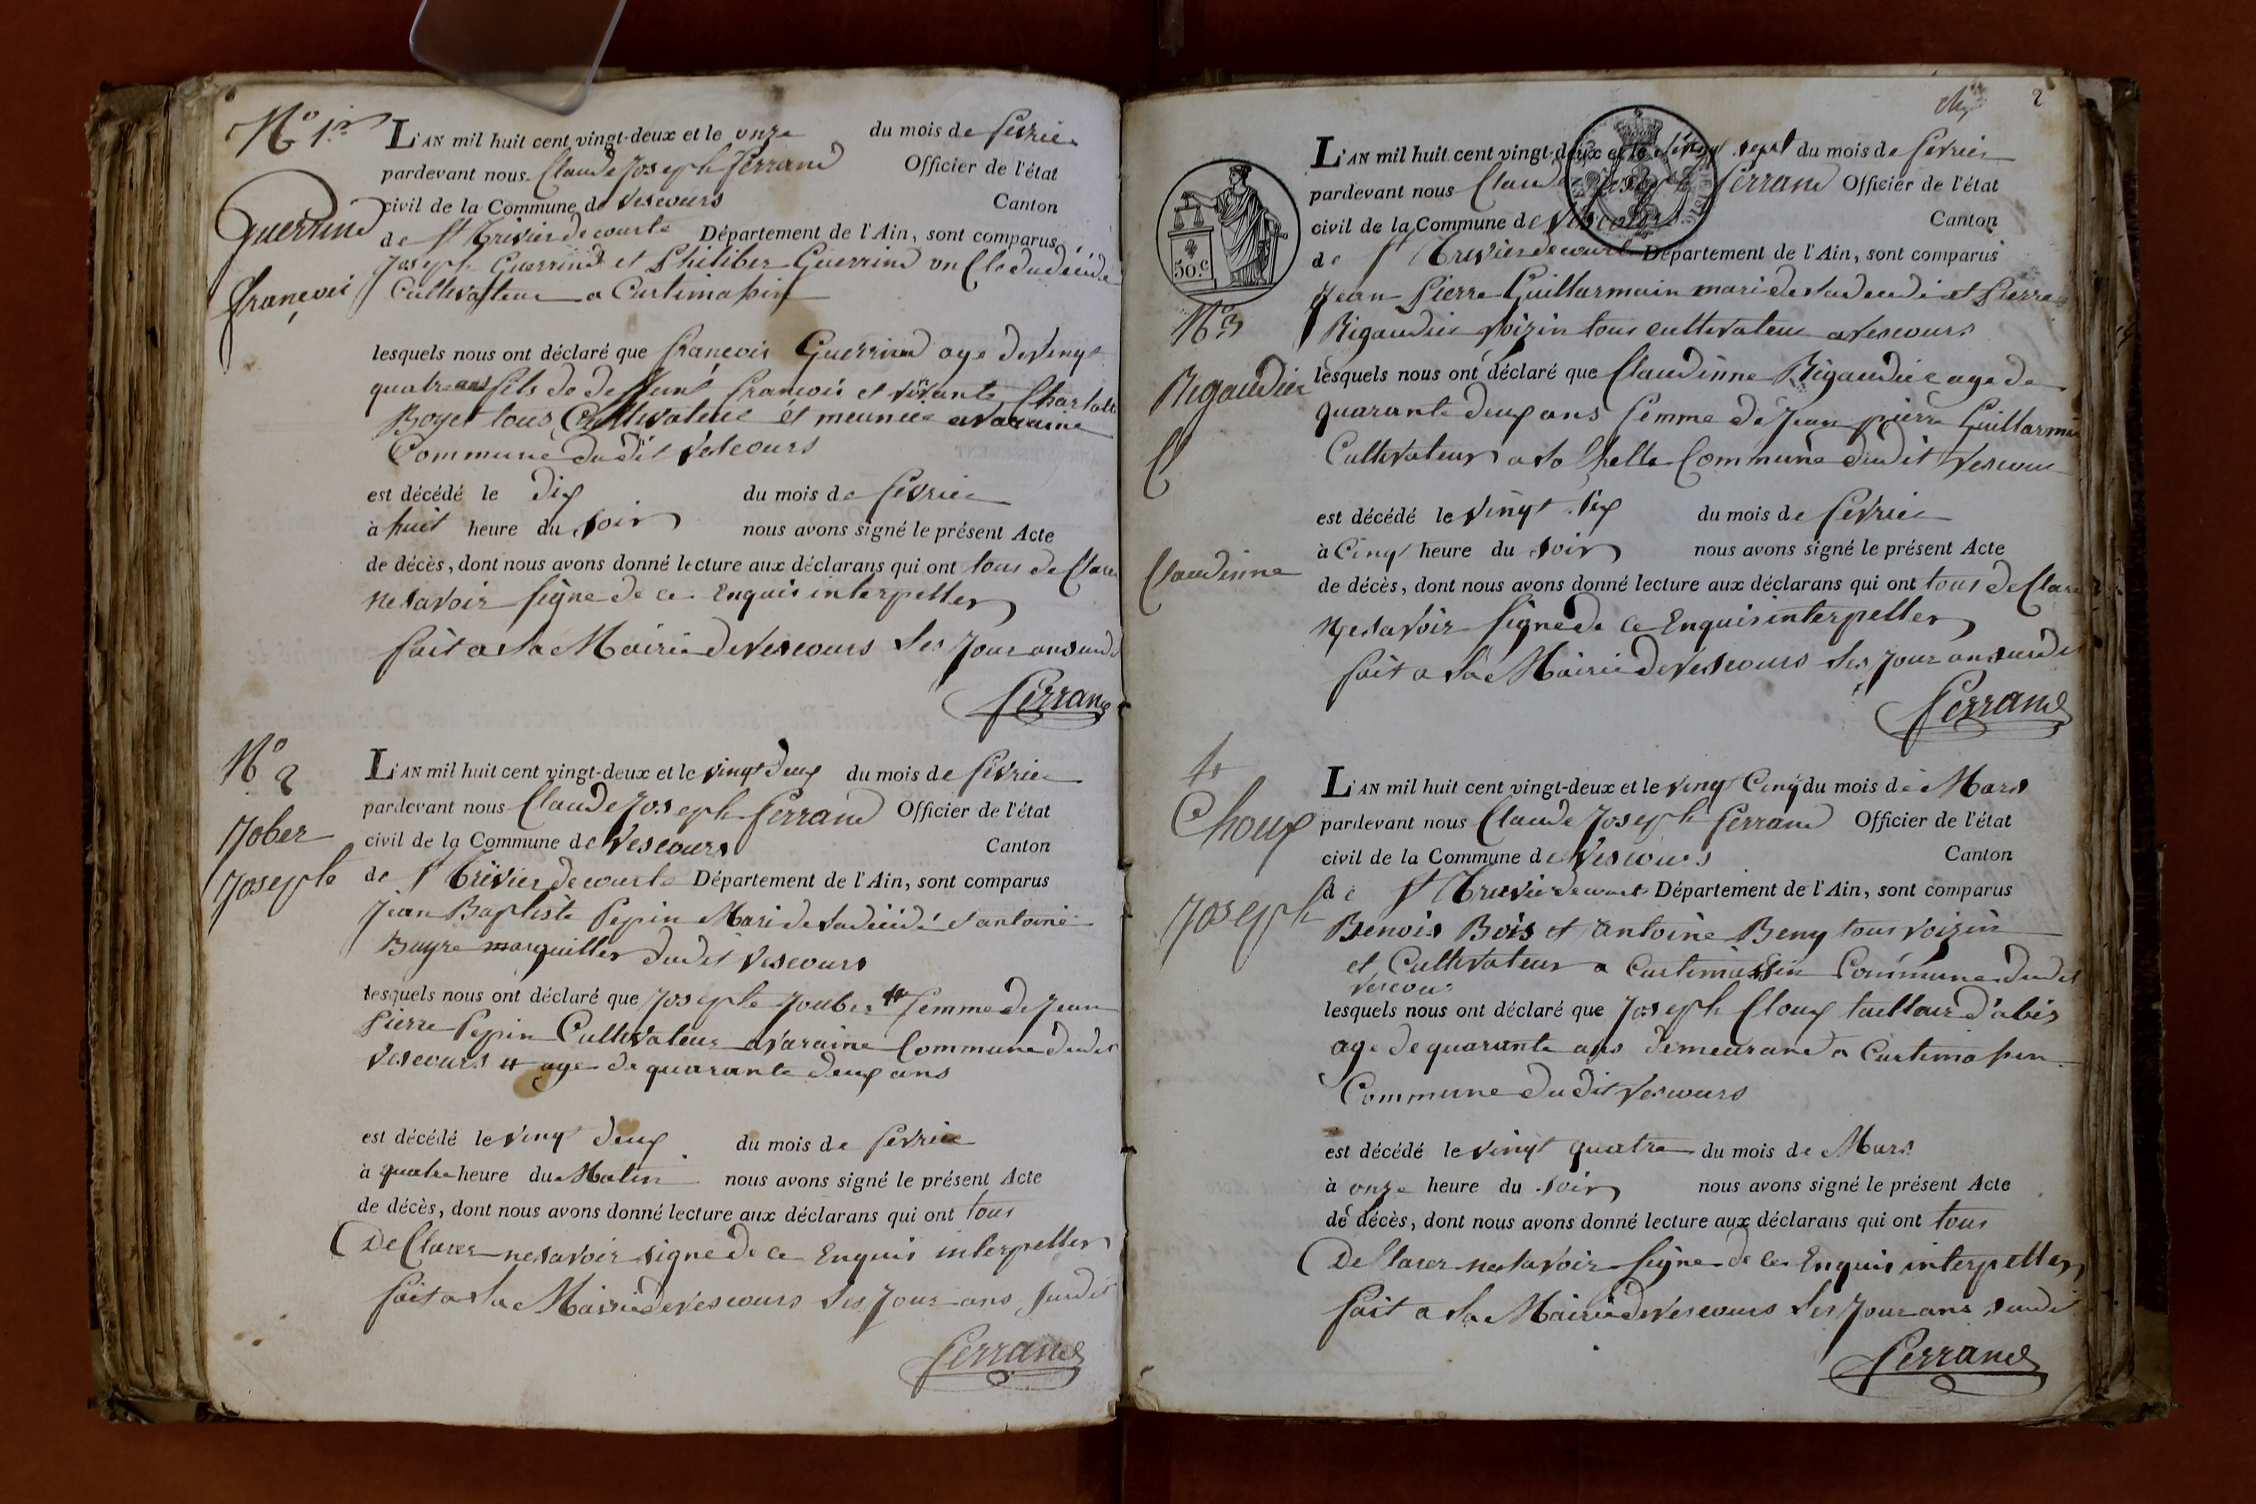 N° 1er
Guerrind
françois
L'AN mil huit cent vingt-deux et le onze du mois de fevrier
pardevant nous Claude Joseph ferrand Officier de l'état
civil de la Commune de Vescours Canton
de St Trivier de courte Département de l'Ain, sont comparus
Joseph Guerrind et Philiber Guerrind oncle du décédé
Cultivateur a Curtimassin
lesquels nous ont déclaré que françois Guerrind age de vingt
quatre ans fils de deffunt françois et vivante Charlotte
Boyet tous Cultivateur et meunier a varaine
Commune du dit Vescours
est décédé le dix du mois de fevrier
à huit heure du soir nous avons signé le présent Acte
de décès, dont nous avons donné lecture aux déclarans qui ont tous de Clarer
ne savoir signe de ce Enquis interpeller
fait a la Mairie de Vescours les jour an susdit
ferrand
N° 2
Jober
Josephe
L'AN mil huit cent vingt-deux et le vingt deux du mois de fevrier
pardevant nous Claude Joseph ferrand Officier de l'état
civil de la Commune de Vescours Canton
de St Trivier de courte Département de l'Ain, sont comparus
Jean Baptiste Pepin Mari de la décédé et antoine
Buyre marguiller dudit Vescours
lesquels nous ont déclaré que Josephe Jouber # femme de Jean
Pierre Pepin Cultivateur a varaine Commune dudit
Vescours # age de quarante deux ans
est décédé le vingt deux du mois de fevrier
à quatre heure du Matin nous avons signé le présent Acte
de décès, dont nous avons donné lecture aux déclarans qui ont tous
De Clarer ne savoir signe de ce Enquis interpeller
fait a la Mairie de Vescours les jour ans susdit
ferrand
2
50.c
N° 3
Rigaudier
Cl
Claudinne
L'AN mil huit cent vingt-deux et le vingt sept du mois de fevrier
pardevant nous Claude Joseph ferrand Officier de l'état
civil de la Commune de Vescours Canton
de St Trivier de courte Département de l'Ain, sont comparus
Jean Pierre Guillarmain mari de la décédé et Pierre
Rigaudier Voizin tous cultivateur a Vescours
lesquels nous ont déclaré que Claudinne Rigaudier age de
quarante deux ans femme de Jean pierre Guillarmin
Cultivateur a la Commune dudit Vescours
est décédé le vingt six du mois de fevrier
à Cinq heure du soir nous avons signé le présent Acte
de décès, dont nous avons donné lecture aux déclarans qui ont tous de Clarer
ne savoir signe de ce Enquis interpeller
fait a la Mairie de Vescours les jour an susdit
ferrand
4
Choux
Joseph
L'AN mil huit cent vingt-deux et le vingt Cinq du mois de Mars
pardevant nous Claude Joseph ferrand Officier de l'état
civil de la Commune de Vescours Canton
de St Trivier de courte Département de l'Ain, sont comparus
Benois Bois et Antoine Beny tous voizin
et Cultivateur a Curtimassin Commune dudit
Vescours
lesquels nous ont déclaré que Joseph Cloux tailleur d'abis
age de quarante ans demeurand a Curtimassin
Commune du dit Vescours
est décédé le vingt quatre du mois de Mars
à onze heure du soir nous avons signé le présent Acte
de décès, dont nous avons donné lecture aux déclarans qui ont tous
De Clarer ne savoir signe de ce Enquis interpeller
fait a la Mairie de Vescours les jour ans susdit
ferrand